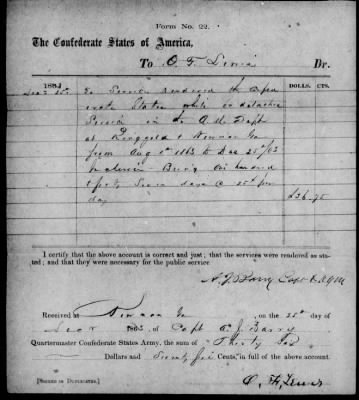 Form No. 22.
The Confederate States of America,
To O. F. Lewis Dr.
DOLLS. CTS.
To Services rendered the Confederate States while on detached
Service in the
at Ringgold & Newnan Ga
from Aug 1st 1863 to Dec 25th /63
inclusive Being One hundred
& forty Seven days @ 25cts per
day $36.75
I certify that the above account is correct and just; that the services were rendered as stated; and that they were necessary for the public service
Capt & A.Q.M.
Received at Newnan Ga, on the 25th day of
Dec 1863, of Capt A. J. Barry
Quartermaster Confederate States Army, the sum of Thirty Six
Dollars and Seventy five Cents, in full of the above account.
[SIGNED IN DUPLICATES.]